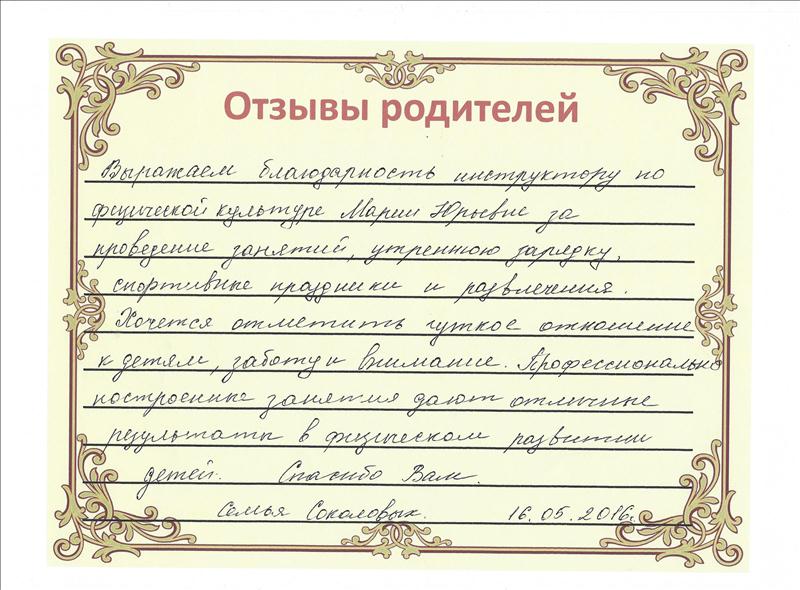 Отзывы родителей
Выражаем благодарность инструктору по
физической культуре Марии Юрьевне за
проведение занятий, утреннюю зарядку,
спортивные праздники и развлечения.
Хочется отметить чуткое отношение
к детям, заботу и внимание. Профессионально
построенные занятия дают отличные
результаты в физическом развитии
детей. Спасибо Вам.
Семья Соколовых. 16.05.2016г.